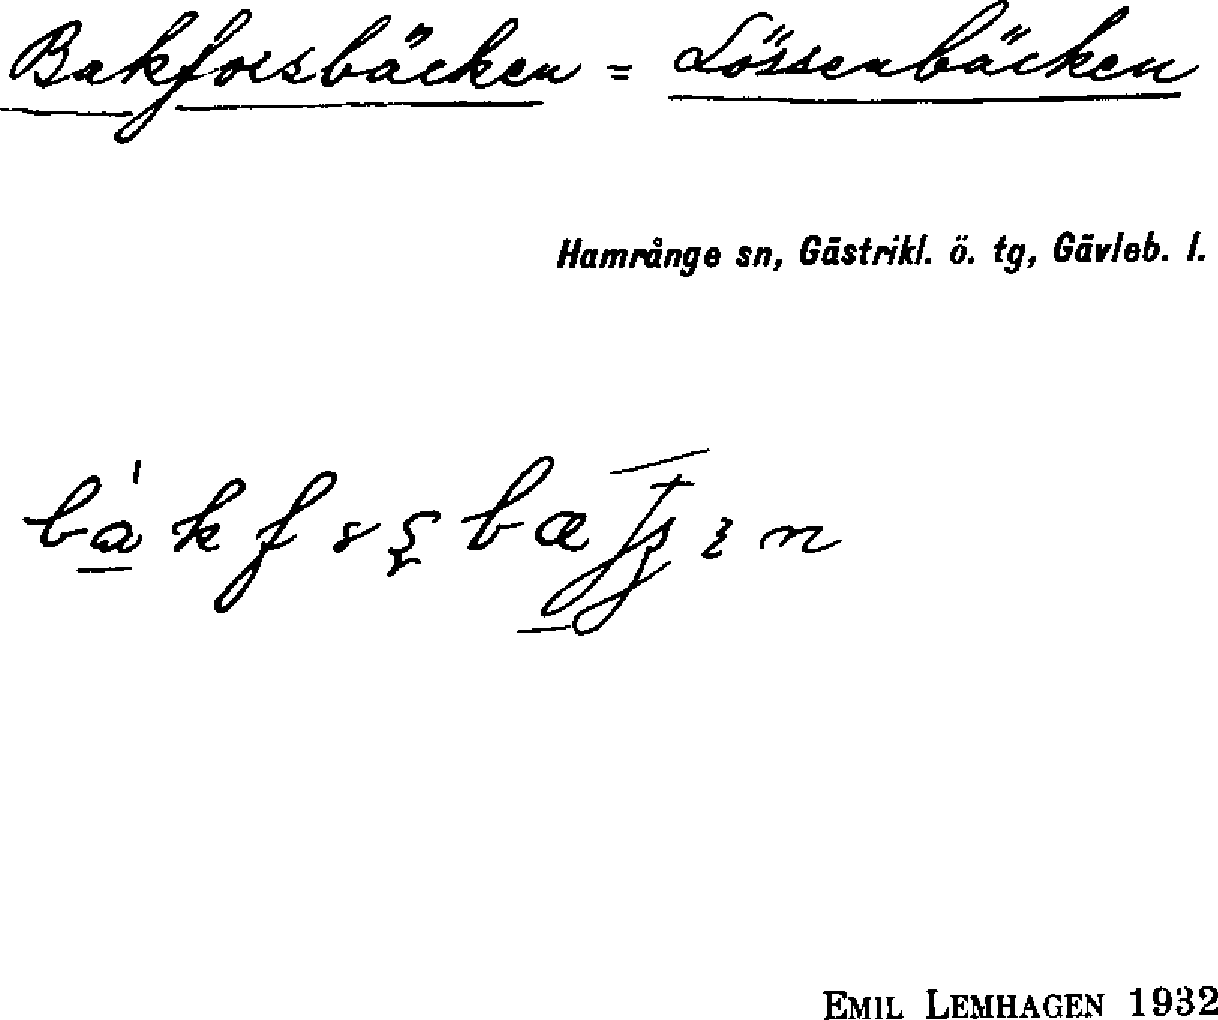 Bakforsbäcken = Lössenbäcken
Hamrånge sn, Gästrikl. ö. tg, Gävleb. l.
EMIL LEMHAGEN 1932